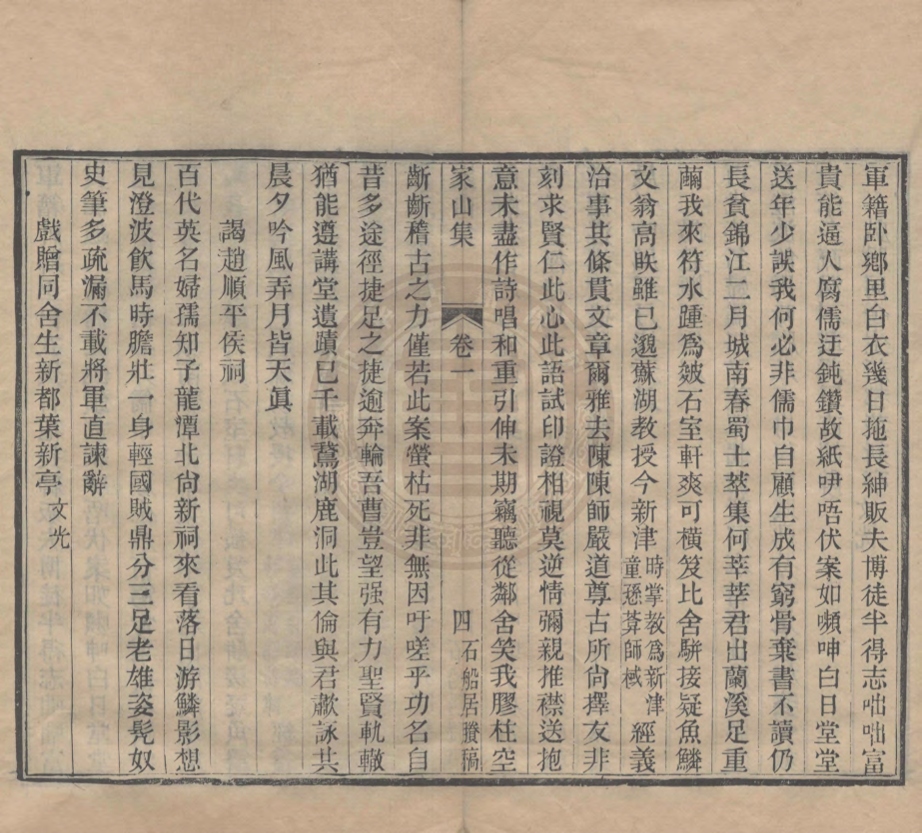 軍籍卧鄉里白衣幾日拖長紳販夫博徒半得志咄咄富
貴能逼人腐儒迂鈍鑽故紙吚唔伏案如嚬呻白日堂堂
送年少誤我何必非儒巾自顧生成有窮骨棄書不讀仍
長貧錦江二月城南春蜀士萃集何莘莘君出蘭溪足重
繭我來符水踵爲皴石室軒爽可橫笈比舍駢接疑魚鱗
文翁高眹雖已邈蘇湖教授今新津時掌教爲新津童懸葊師棫經義
洽事其條貫文章爾雅去陳陳師嚴道尊古所尙擇友非
刻求賢仁此心此語試印證相視莫逆情彌親推襟送抱
意未盡作詩唱和重引伸未期竊聽從鄰舍笑我膠柱空
家山集 卷一 四 石船居賸稿
齗齗稽古之力僅若此案螢枯死非無因吁嗟乎功名自
昔多途徑捷足之捷逾奔輪吾曹豈望强有力聖賢軌轍
猶能遵講堂遺蹟已千載鵞湖鹿洞此其倫與君歗詠共
晨夕吟風弄月皆天眞
謁趙順平侯祠
百代英名婦孺知子龍潭北尙新祠來看落日游鱗影想
見澄波飲馬時膽壯一身輕國賊鼎分三足老雄姿髠奴
史筆多疏漏不載將軍直諫辭
戲贈同舍生新都葉新亭文光